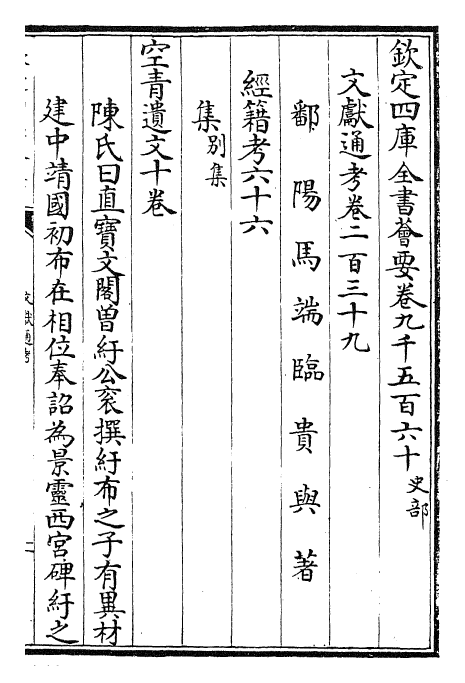 欽定四庫全書薈要卷九千五百六十史部
文獻通考卷二百三十九
鄱陽馬端臨貴與著
經籍考六十六
集別集
空青遺文十卷
陳氏曰直寶文閣曾紆公衮撰紆布之子有異材
建中靖國初布在相位奉詔為景靈西宮碑紆之
文獻通考